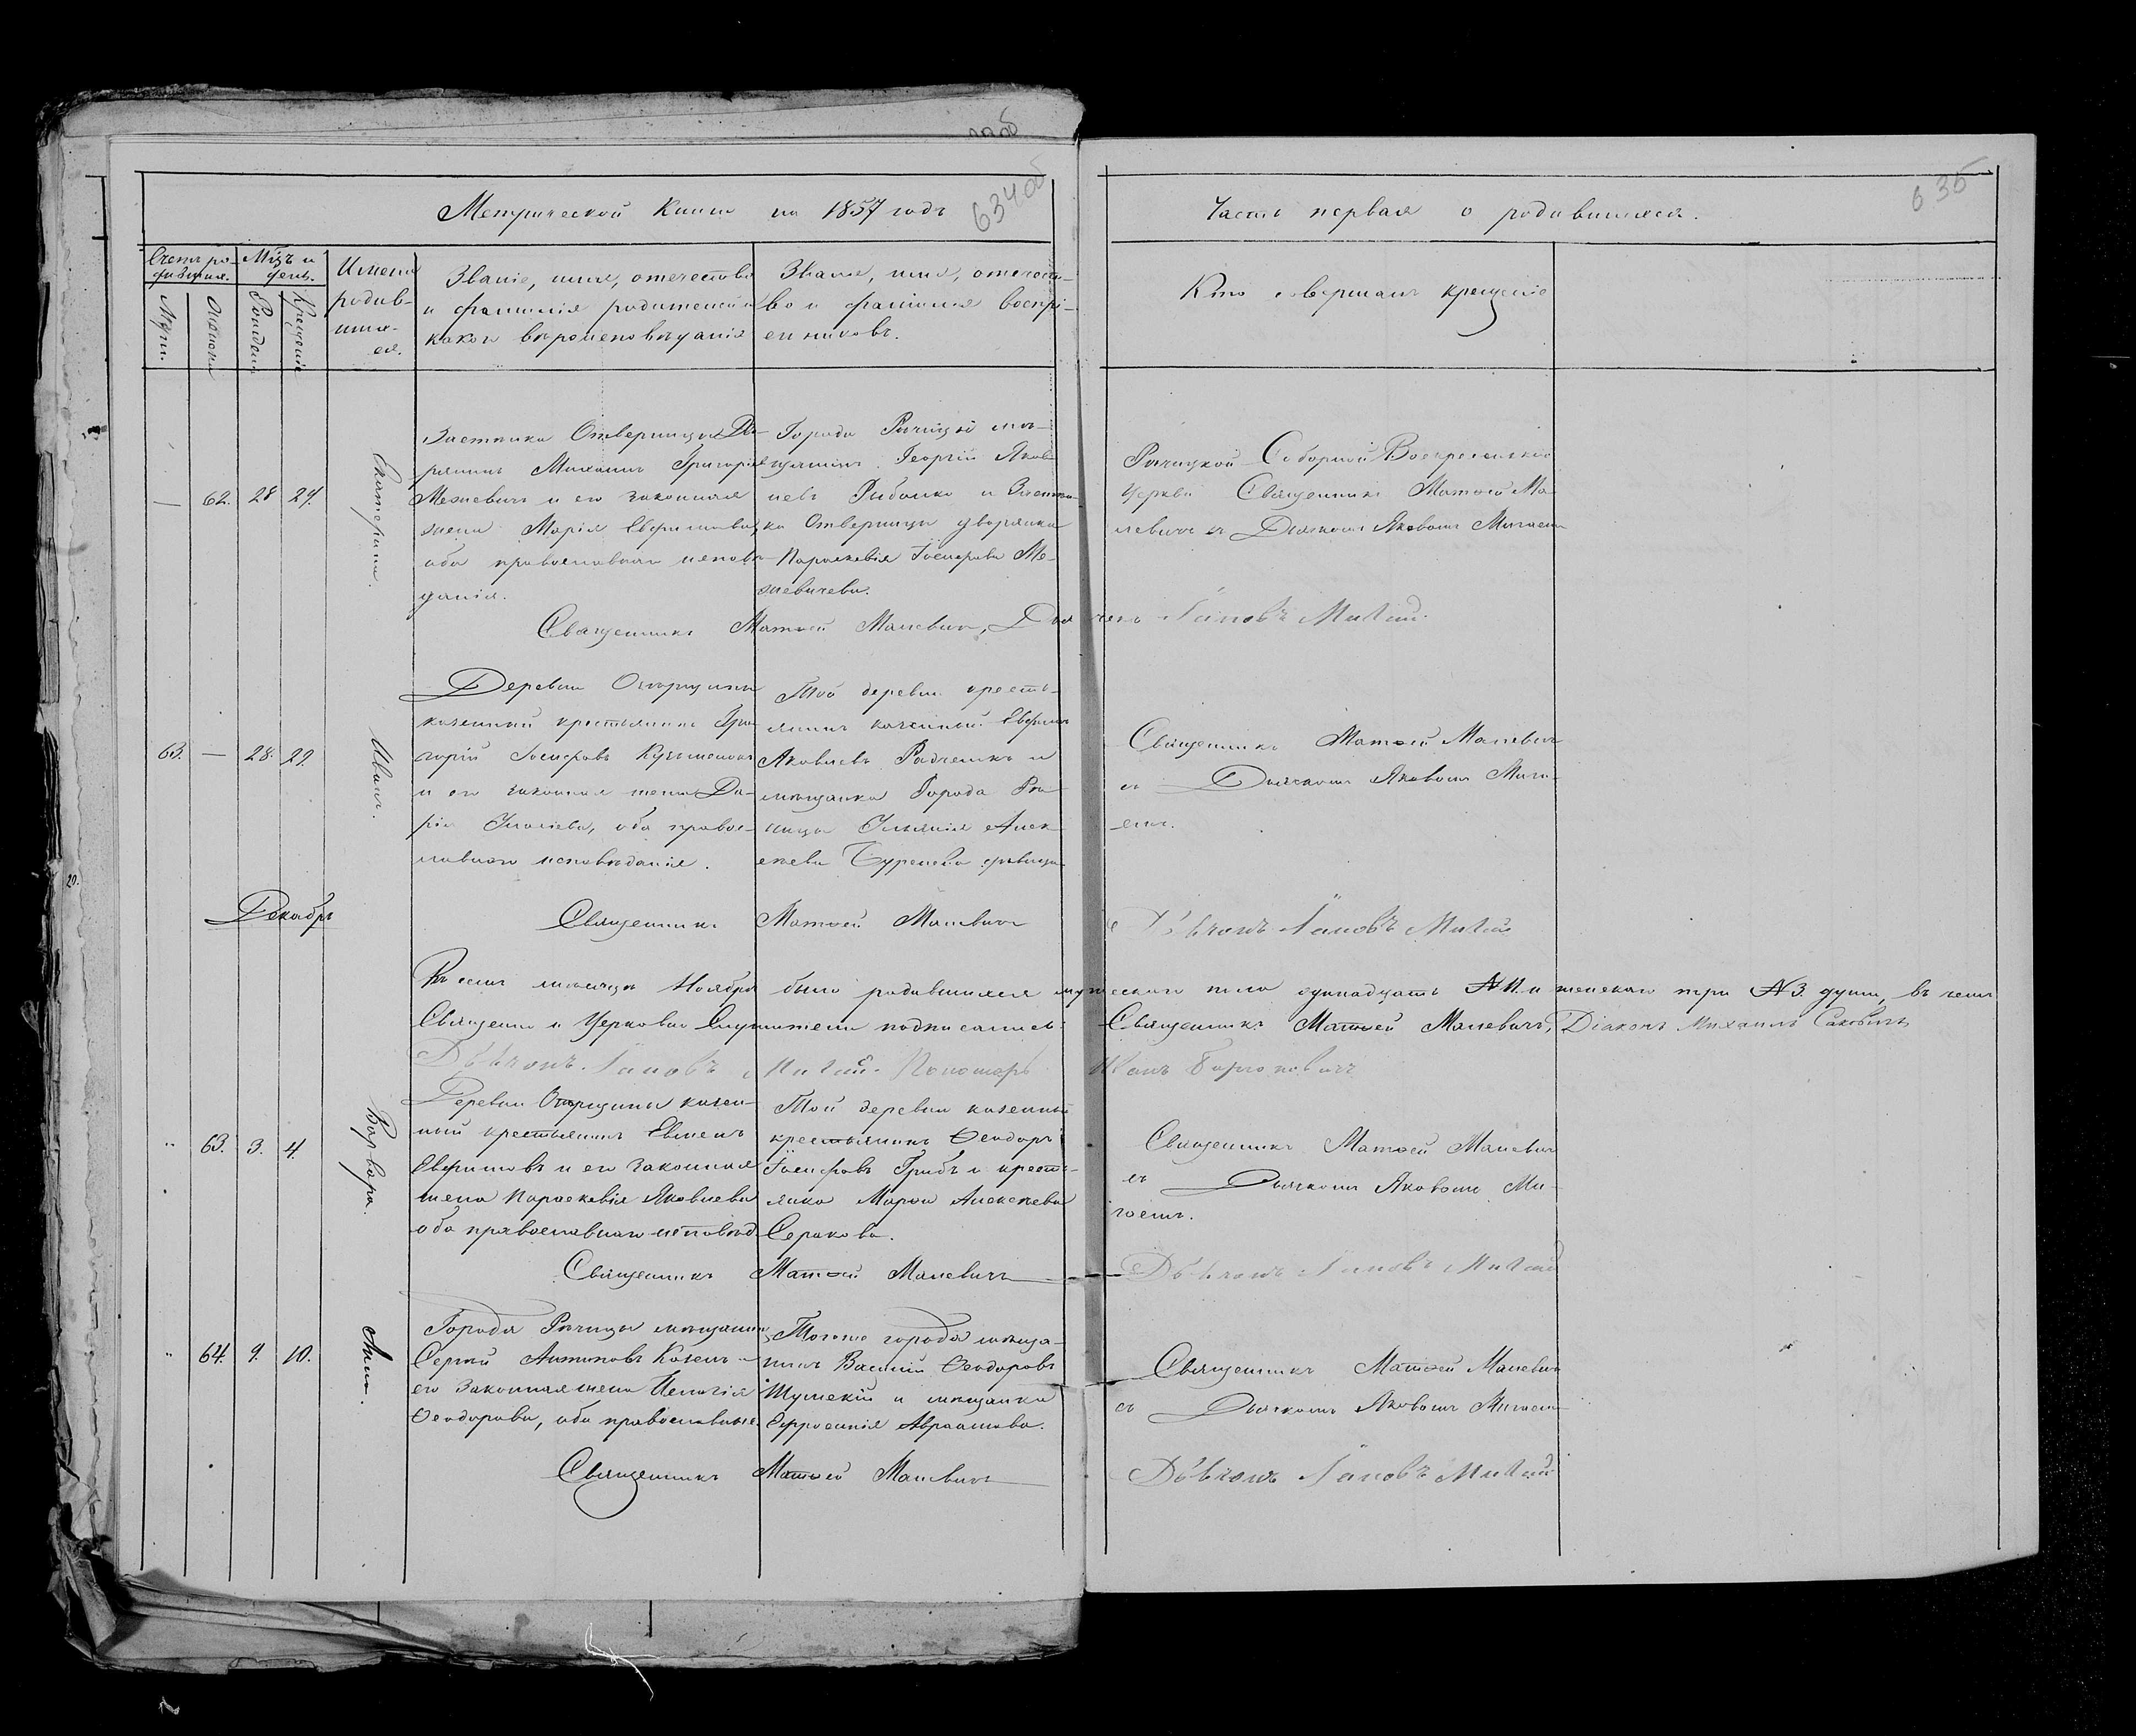 634об
635
Метрической Книги на 1857 годъ
Часть первая о родившихся.
Счетъ ро-
дившихся.
Муж.
Женска
Мѣцъ и
день.
Рожден.
Крещенія
Имена
родив-
шихся
ся.
Званіе, имя, отечество
и фамилія родителей и
какого вѣроисповѣданія
Званіе, имя, отечест-
во и фамилія воспрі-
емниковъ.
Кто совершалъ крещеніе
— 62. 28 29.
Екатерина.
Застѣнка Отверницы Дво-
рянинъ Михаилъ Григоріевъ
Межевичъ и его законная
жена Марія Ефимова,
оба православнаго исповѣ-
данія.
Города Рѣчицы мѣ-
щанинъ Георгій Яков-
левъ Рибалко и Застѣн-
ка Отверницы дворянка
Параскевія Іосифова Ме-
жевичева.
Рѣчицкой Соборной Воскресенской
Церкви Священникъ Матѳей Ма-
левичъ съ Дьячкомъ Яковомъ Мигаем
Священникъ Матѳей Малевичъ, Дьячекъ Яковъ Мигай
63. — 28. 29.
Иванъ.
Деревни
казенный крестьянинъ Гри-
горій Іосифовъ
и его законная жена Да-
рія Игнатіева, оба правос-
лавнаго исповѣданія.
Той деревни кресть-
янинъ казенный Ефимъ
Яковлевъ Радченко и
мѣщанка Города Рѣ-
чицы Ульянія Алек-
сѣева девица
Священникъ Матѳей Малевичъ
съ Дьячкомъ Яковомъ Мига-
емъ.
Священникъ Матѳей Малевичъ
Дьячокъ Яковъ Мигай
Декабрь
Въ семъ мѣсяцѣ Ноябрѣ было родившихся мужескаго пола одинадцать № 11. и женскаго три № 3. души, въ чемъ
Священно и Церковно Служители подписались: Священникъ Матѳей Малевичъ, Діаконъ Михаилъ Саковичъ
Дьячокъ Яковъ Мигай Пономарь Иванъ
" 63. 3. 4.
Варвара.
Деревни казен-
ный крестьянинъ Евменъ
Ефимовъ и его законная
жена Параскевія Яковлева
оба православнаго исповѣд.
Той деревни казенный
крестьянинъ Ѳеодоръ
Іосифовъ Грибъ и кресть-
янка Марѳа Алексѣева
Серакова.
Священникъ Матѳей Малевич
съ Дьячкомъ Яковомъ Ми-
гаемъ.
Священникъ Матѳей Малевичъ
Дьячокъ Яковъ Мигай
" 64. 9. 10.
Анна.
Города Рѣчицы мѣщанинъ
Сергій Антиповъ Козелъ и
его Законная жена Пелагія
Ѳеодорова, оба православные.
Тогоже города мѣща-
нинъ Василій Ѳеодоровъ
Шумскій и мѣщанка
Ефросинія Авраамова.
Священникъ Матѳей Малевич
съ Дьячкомъ Яковомъ Мигаем
Священникъ Матѳей Малевичъ
Дьячокъ Яковъ Мигай